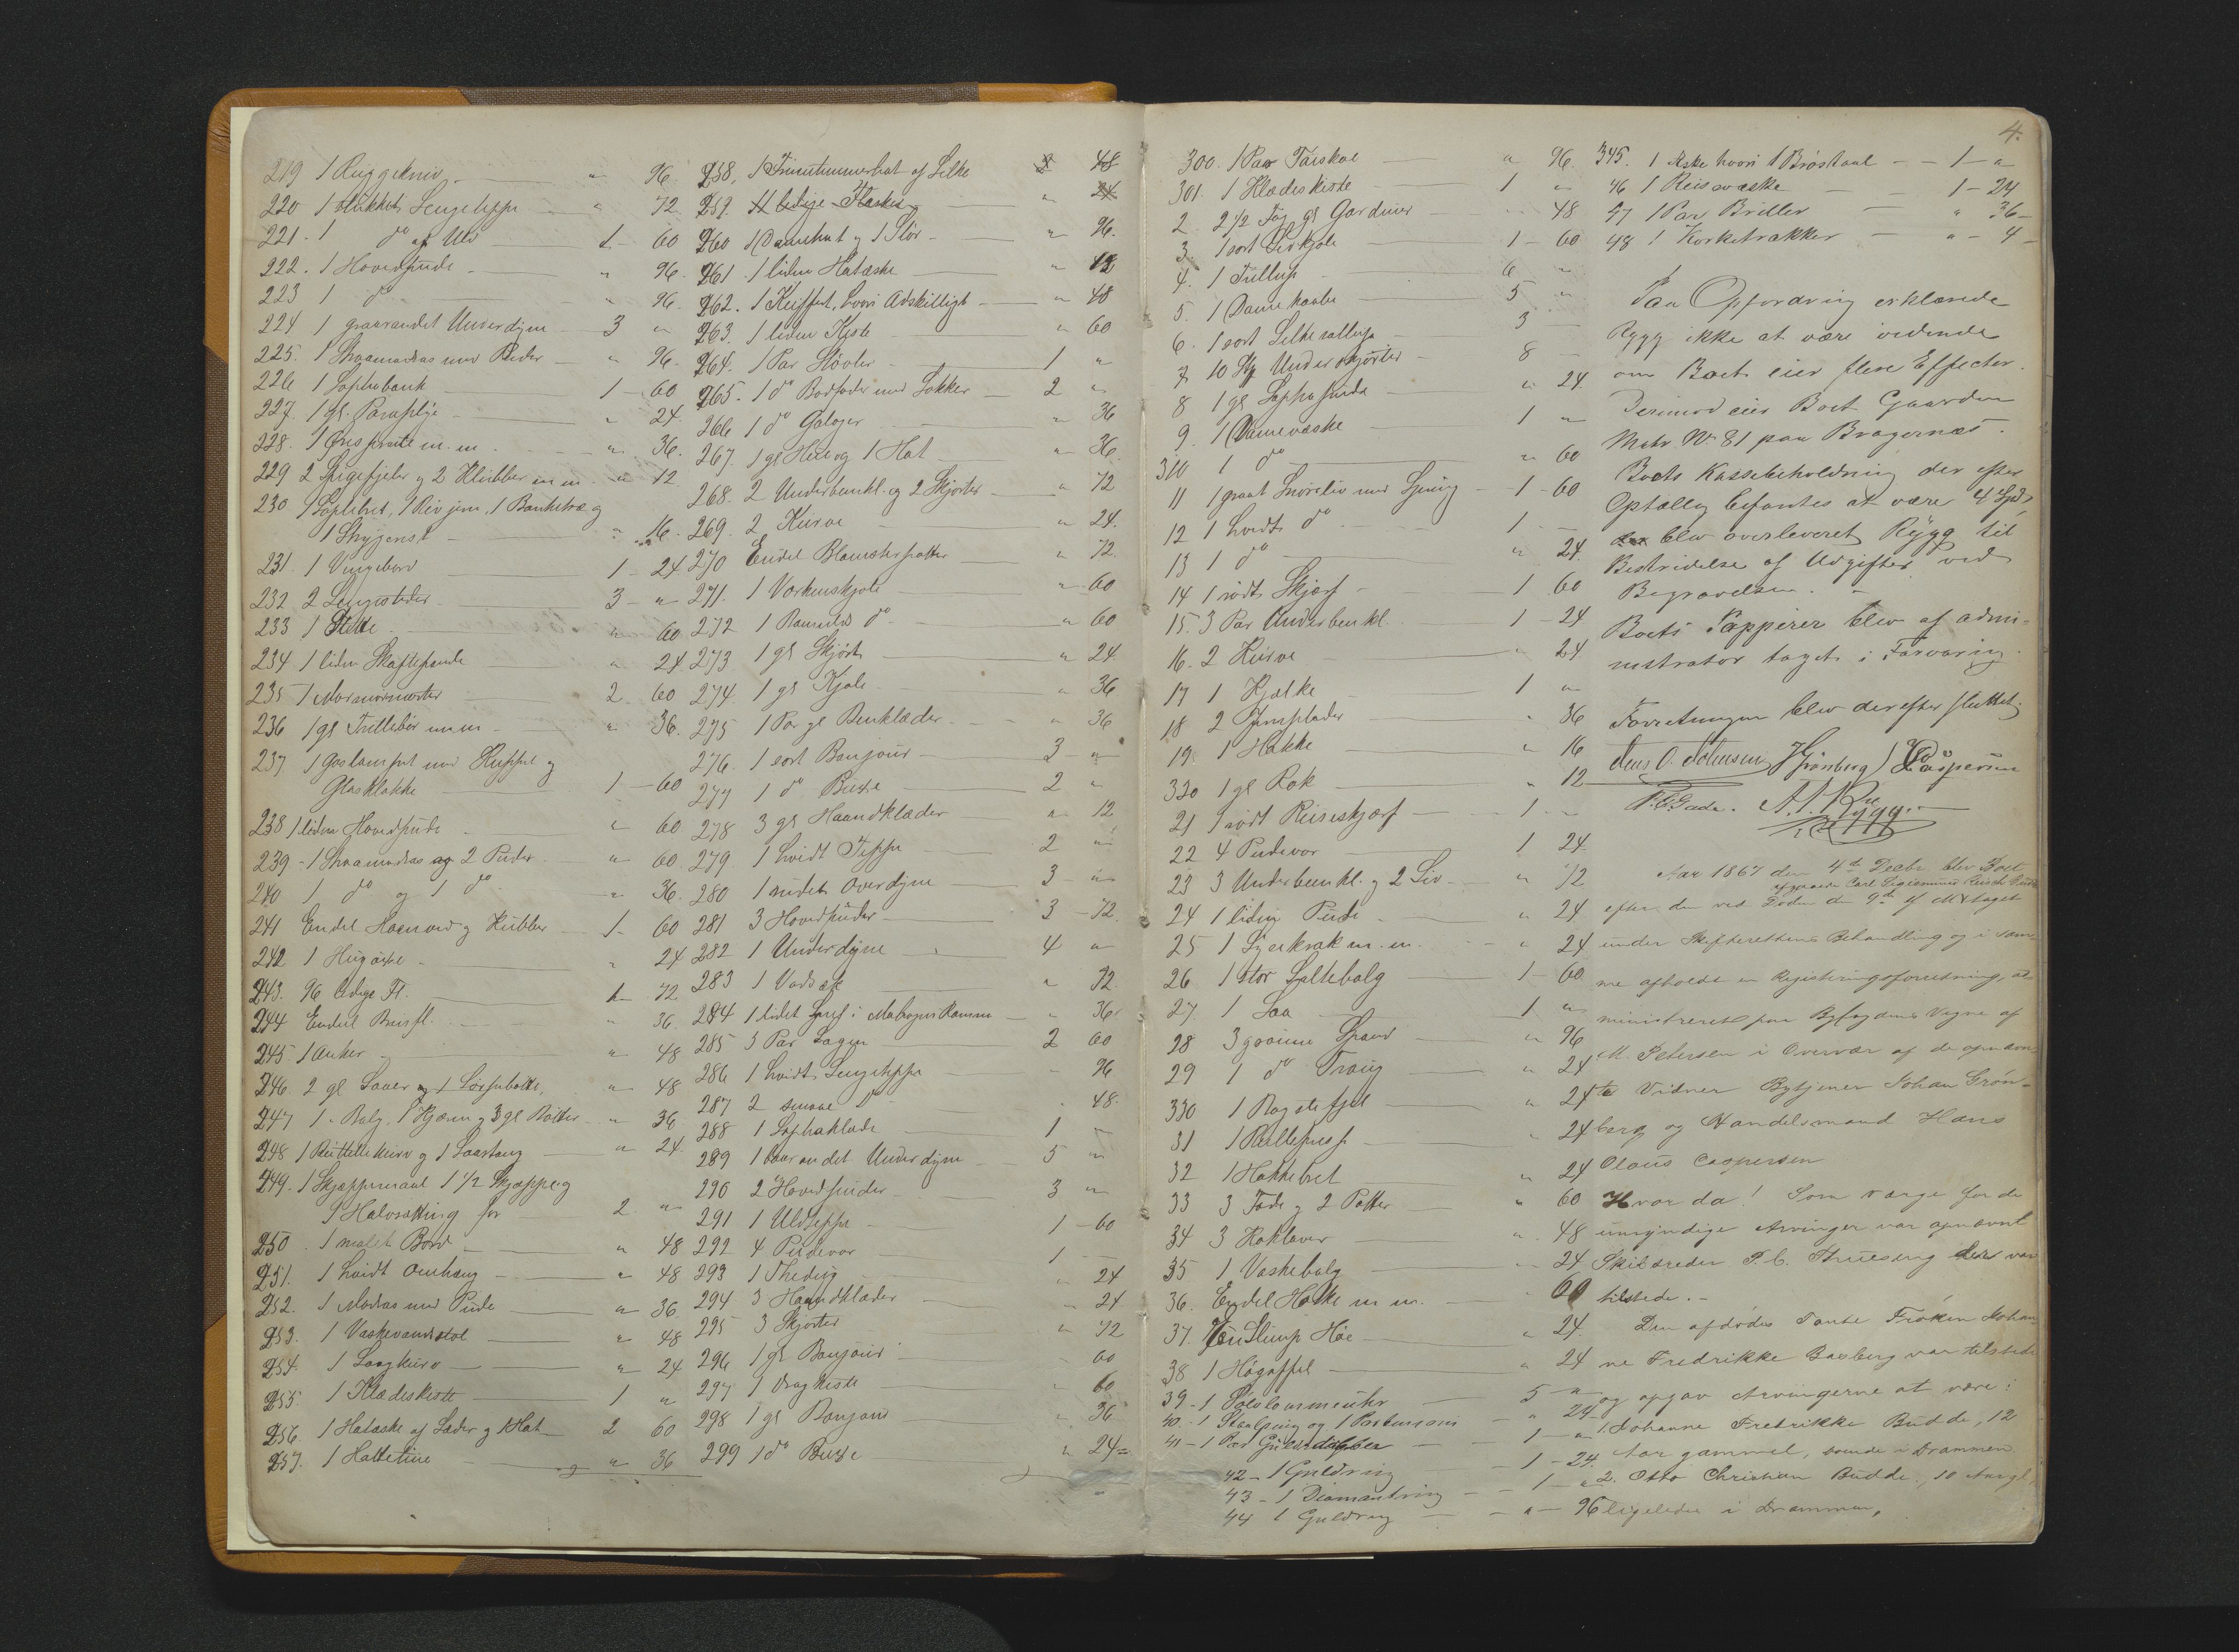 219 1 Ruggekniv " 96.
220 1 stukket Sengeteppe " 72
221. 1 do af Uld 1 - 60
222. 1 Hovedpude " 96.
223 1 do " 96.
224 1 graarandet Underdyne 3 "
225. 1 Straamadras med Puder " 96.
226 1 Sophabenk 1 - 60
227. 1 gl. Paraplye " 24.
228. 1 m. m. " 36.
229 2 og 2 Klubber m m. " 12
230 1 Rivjern, 1 Banketræ og
1 " 16.
231. 1 Vingebord 1 - 24
232 2 Sengesteder 3 - "
233 1 " 60
234 1 liden " 24.
235 1 Marmormorter 2 60
236 1 gl Trillebør m m " 36.
237 1 Gaslampe med Kuppel og
Glasklokke 1 - 60
238 1 liden Hovedpude " 60
239 - 1 Straamadras og 2 Puder " 60.
240 1 do og 1 do " 36.
241 Endel og Kubber 1 - 60
242 1 Hugøxe " 24
243. 96 ledige Fl. 1 - 72
244 Endel fl. " 36.
245. 1 Anker " 48
246 2 gl. Saaer og 1 " 48
247 1 Balg, 1 Kjærne og 3 gl Bøtter " 36
248 1 og 1 Saastang " 24
249. 1 Skjæppemaal 1 1/2 Skjæppe og
1 for 2 "
250. 1 malet Bord " 48
251. 1 hvidt Omhæng " 48
252. 1 Madras med Pude " 36
253. 1 Vaskevandsstol " 48
254. 1 " 24
255. 1 Klædeskiste 1 "
256. 1 Hatæske af Læder og 1 Hat 2 60
257. 1 Hattetine " 36
258, 1 Fruentimmerhat af Silke 48
259. 11 ledige Flasker " 24
260 1 Damehat og 1 Slør " 96.
261. 1 liden Hatæske " 12
262. 1 Kuffert, hvori Adskilligt " 48
263. 1 liden Kiste " 60
264. 1 Par Støvler 1 "
265. 1 do med Sokker 2 "
266 1 do Galoger " 36
267. 1 gl Hue og 1 Hat " 36.
268. 2 Underbenkl. og 2 Skjorter " 72
269. 2 Kurve " 24.
270 Endel Blomsterpotter " 12.
271. 1 Værkenskjole " 60
272 1 Bomulds do " 60
273 1 gl Skjørt " 24
274. 1 gl Kjole " 36
275 1 Par gl Benklæder " 36
276. 1 sort Bonjour 3 - "
277 1 do Buxe 2 "
278 3 gl Haandklæder " 12
279. 1 hvidt Teppe 2 "
280 1 Overdyne 3 - "
281 3 Hovedpuder 3 - 72.
282 1 Underdyne 4 "
283 1 Vadsæk " 72.
284 1 lidet Speil i Mahogni Ramme " 36
285 3 Par Lagen 2 60
286 1 hvidt Sengeteppe - 96
287 2 smaae Do " 48.
288 1 Sophaklæde 1 "
289 1 Underdyne 5 "
290 2 Hovedpuder 3 "
291 1 Uldteppe 1 - 60
292 4 Pudevar 1 -
293 1 Thedug " 24
294 3 Haandklæder " 24
295 3 Skjorter " 72
296 1 gl. Bonjour " 60
297 1 Dragkiste " 60
298 1 gl Bonjour " 36
299 1 do Buxe " 24
4.
300. 1 Par Tøiskoe " 96.
301 1 Klædeskiste 1 "
2 2 1/2 Fag gl Gardiner " 48
3. 1 sort Silkekjole 1 - 60
4. 1 6 "
5. 1 Damekaabe 5 "
6. 1 sort Silke 3 -
7 10 Stk Underskjorter 8 -
8 1 gl Sophapude " 24.
9. 1 Damevæske 1 "
310 1 do " 60
11 1 graat Snøreliv med Spring 1 - 60
12 1 hvidt do 1 -
13 1 do " 24
14 1 rødt Skjærf 1 60
15. 3 Par Underbenkl. 1 - 24
16. 2 Kurve " 24
17 1 Kjælke 1 "
18 2 Jernplader " 36
19 1 Hakke " 16
320 1 gl Rok " 12
21 1 rødt Reiseskjærf 1 -
22 4 Pudevar 1 24.
23 3 Underbeenkl. og 2 Liv " 72
24 1 liden Pude " 24
25 1 m. m. " 24
26 1 stor Saltebalg 1 - 60
27. 1 Saa 1 "
28 3 Spand " 96
29 1 do Traug " 24
330 1 " 24
31 1 " 24
32 1 Hakkebret " 24
33 3 Fade og 2 Potter " 60
34 3 " 48
35 1 Vaskebalg " 24
36. Endel m m. " 60
37. Høe " 24.
38 1 Høgaffel " 24
39 - 1 Sølvlommeuhr 5 "
40. - 1 og 1 Portemonnaie " 24
41 - 1 Par 1 - "
42 - 1 Guldring 1 - 24.
43 - 1 Diamantring 1 - "
44 1 Guldring " - 96
345. 1 Æske hvori 1 Brøstnaal 1 - "
46 1 Reisevæske 1 - 24
47 1 Par Briller " 36 -
48 1 Korketrækker " - 4 -
Paa Opfordring erklærede
Rygg ikke at være vidende
om Boet eier flere Effecter.
Derimod eier Boet Gaarden
Matr. No 81 paa Bragernæs.
Boets Kassebeholdning der efter
Optælling befantes at være 4 Spd,
blev overleveret Rygg til
Bestridelse af Udgifter ved
Begravelsen. -
Boets Pappirer blev af admi-
nistrator taget i Forvaring.
Forretningen blev derefter sluttet.
Jens O. Johnsen J Grönberg Casperssen
P. C. Gade. A. Rygg.
Aar 1867 den 4de Decbr blev Boet
efter Carl Sigismund
efter den ved Døden den 9de af taget
under Skifterettens Behandling og i sam-
me afholdt en Registringsforretning, ad-
ministreret paa Byfogdens Vegne af
M. Petersen i Overvær af de opnævn-
te Vidner Bytjener Johan Grøn-
berg og Handelsmand Hans
Olaus Caspersen
Hvor da! Som værge for de
umyndige Arvinger var opnævnt
Skibsreder P. C. der var
tilstede. -
Den afdødes Tante Frøken Johan
ne Fredrikke Basberg var tilstede
og opgav Arvingerne at være:
1. Johanne Fredrikke Budde, 12
Aar gammel, boende i Drammen.
2. Otto Christian Budde, 10 Aar gl.
ligeledes i Drammen,